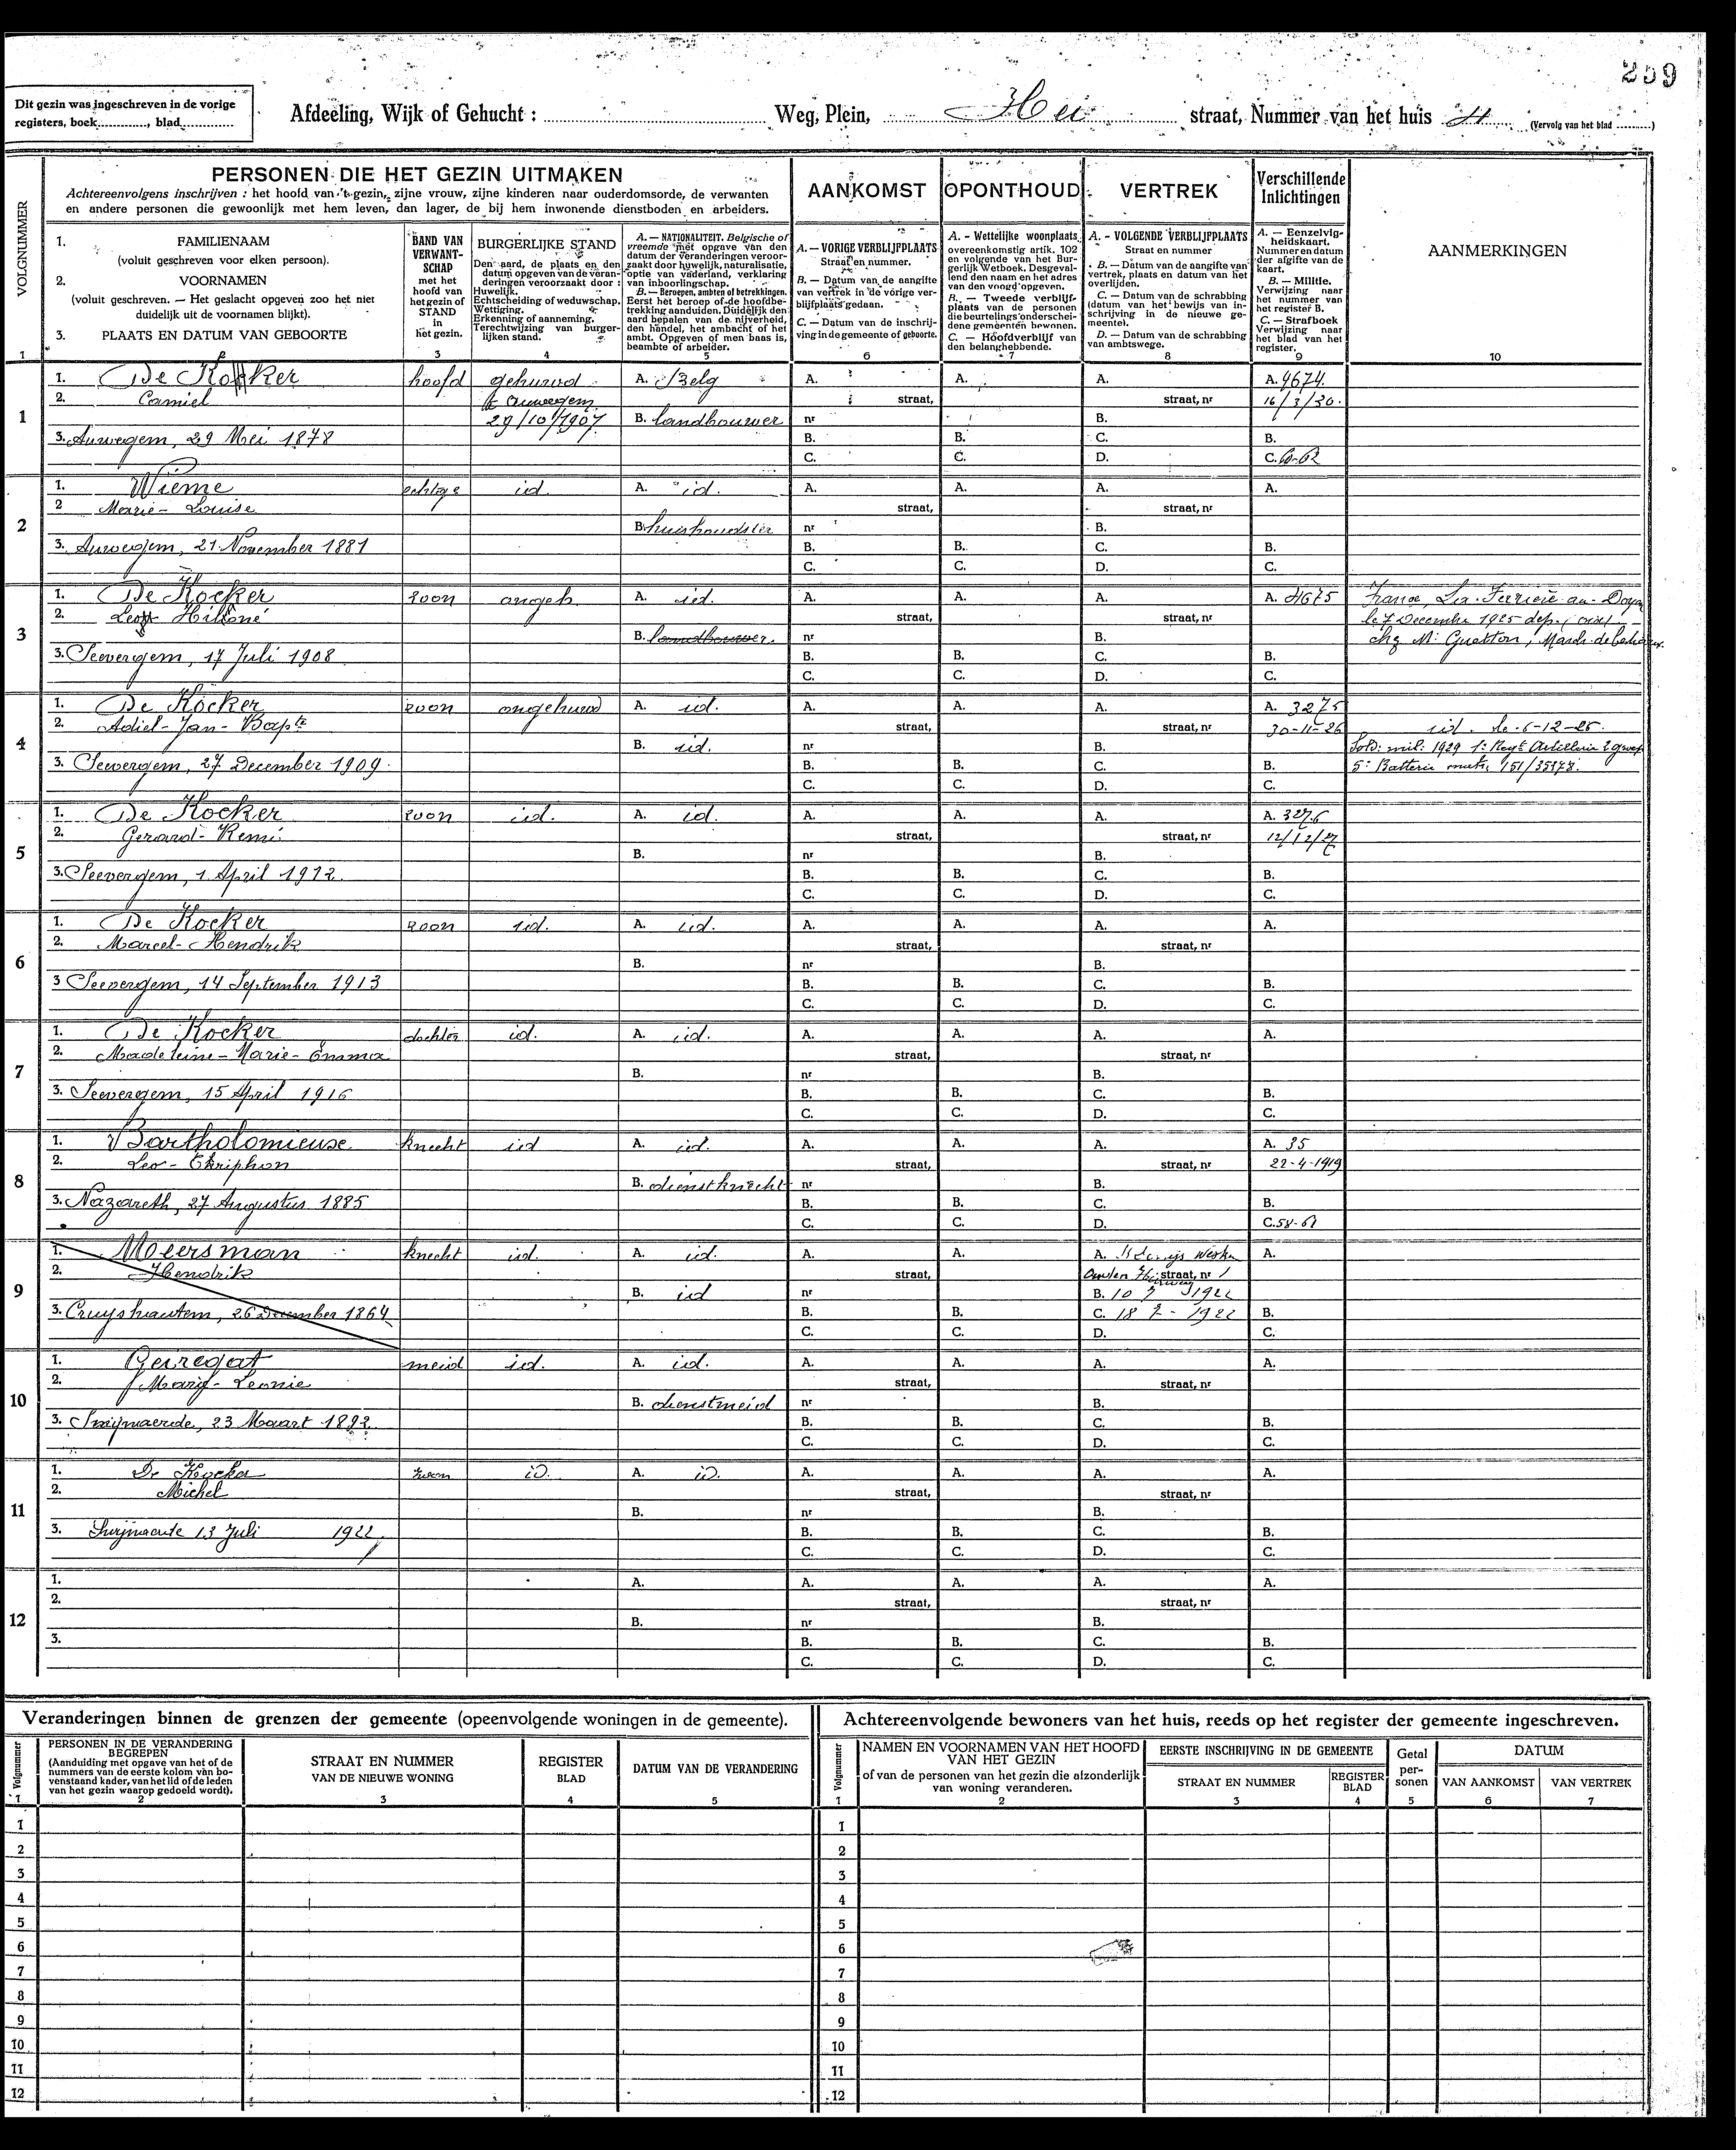 259
Dit gezin was ingeschreven in de vorige
registers, boek............, blad............
Afdeeling, Wijk of Gehucht : ............ Weg, Plein, Hei straat, Nummer van het huis 4 (Vervolg van het blad .........)
PERSONEN DIE HET GEZIN UITMAKEN
Achtereenvolgens inschrijven : het hoofd van 't gezin, zijne vrouw, zijne kinderen naar ouderdomsorde, de verwanten
en andere personen die gewoonlijk met hem leven, dan lager, de bij hem inwonende dienstboden en arbeiders.
AANKOMST
OPONTHOUD
VERTREK
Verschillende
Inlichtingen
AANMERKINGEN
VOLGNUMMER
1. FAMILIENAAM
(voluit geschreven voor elken persoon).
2. VOORNAMEN
(voluit geschreven. — Het geslacht opgeven zoo het niet
duidelijk uit de voornamen blijkt).
3. PLAATS EN DATUM VAN GEBOORTE
BAND VAN
VERWANT-
SCHAP
met het
hoofd van
het gezin of
STAND
in
het gezin.
BURGERLIJKE STAND
Den aard, de plaats en den
datum opgeven van de veran-
deringen veroorzaakt door :
Huwelijk.
Echtscheiding of weduwschap.
Wettiging.
Erkenning of aanneming.
Terechtwijzing van burger-
lijken stand.
A. — NATIONALITEIT. Belgische of
vreemde met opgave van den
datum der veranderingen veroor-
zaakt door huwelijk, naturalisatie,
optie van vaderland, verklaring
van inboorlingschap.
B. — Beroepen, ambten of betrekkingen.
Eerst het beroep of de hoofdbe-
trekking aanduiden. Duidelijk den
aard bepalen van de nijverheid,
den handel, het ambacht of het
ambt. Opgeven of men baas is,
beambte of arbeider.
A. — VORIGE VERBLIJFPLAATS
Straat en nummer.
B. — Datum van de aangifte
van vertrek in de vorige ver-
blijfplaats gedaan.
C. — Datum van de inschrij-
ving in de gemeente of geboorte.
A. - Wettelijke woonplaats
overeenkomstig artik. 102
en volgende van het Bur-
gerlijk Wetboek. Desgeval-
lend den naam en het adres
van den voogd opgeven.
B. — Tweede verblijf-
plaats van de personen
die beurtelings onderschei-
dene gemeenten bewonen.
C. — Hoofdverblijf van
den belanghebbende.
A. - VOLGENDE VERBLIJFPLAATS
Straat en nummer
B. — Datum van de aangifte van
vertrek, plaats en datum van het
overlijden.
C. — Datum van de schrabbing
(datum van het bewijs van in-
schrijving in de nieuwe ge-
meente).
D. — Datum van de schrabbing
van ambtswege.
A. — Eenzelvig-
heidskaart.
Nummer en datum
der afgifte van de
kaart.
B. — Militie.
Verwijzing naar
het nummer van
het register B.
C. — Strafboek
Verwijzing naar
het blad van het
register.
1 2 3 4 5 6 7 8 9 10
1 1. De Kocker hoofd gehuwd A. Belg A. A. A. A. 4674.
2. Camiel Auwegem straat, straat, nr 16/3/30.
29/10/1907 B. landbouwer nr B.
3. Auwegem, 29 Mei 1878 B. B. C. B.
C. C. D. C. 60-62
2 1. Wieme id. A. id. A. A. A. A.
2 Marie-Louise straat, straat, nr
B. huishoudster nr B.
3. Auwegem, 21 November 1881 B. B. C. B.
C. C. D. C.
3 1. De Kocker zoon ongeh. A. id. A. A. A. A. 4675 France, La Ferrière-au-Doyen
2. straat, straat, nr le 7 Decembre 1925
B. landbouwer. nr B. chez Mr
3. Seevergem, 17 Juli 1908 B. B. C. B.
C. C. D. C.
4 1. De Kocker zoon ongehuwd A. id. A. A. A. A. 3275
2. Adiel-Jan-Bapte straat, straat, nr 30-11-26 id. le 6-12-25.
B. id. nr B. Sold. mil. 1929 1e Regt Artillerie
3. Seevergem, 27 December 1909. B. B. C. B. 5e Batterie 151/35978.
C. C. D. C.
5 1. De Kocker zoon id. A. id. A. A. A. A. 3276
2. Gerard-Remi straat, straat, nr 12/12/27
B. nr B.
3. Seevergem, 1 April 1912. B. B. C. B.
C. C. D. C.
6 1. De Kocker zoon id. A. id. A. A. A. A.
2. Marcel-Hendrik straat, straat, nr
B. nr B.
3 Seevergem, 14 September 1913 B. B. C. B.
C. C. D. C.
7 1. De Kocker dochter id. A. id. A. A. A. A.
2. Madeleine-Marie-Emma straat, straat, nr
B. nr B.
3. Seevergem, 15 April 1916 B. B. C. B.
C. C. D. C.
8 1. Bartholomieuse knecht id A. id. A. A. A. A. 35
2. Leo- straat, straat, nr 22-4-1919
B. dienstknecht nr B.
3. Nazareth, 27 Augustus 1885 B. B. C. B.
C. C. D. C. 58-61
9 1. Moersman knecht id. A. id. A. A. A. A.
2. Hendrik straat, straat, nr 1
B. id nr B. 10 7 1922
3. Cruyshautem, 26 December 1864 B. B. C. 18 7 - 1922 B.
C. C. D. C.
10 1. Geiregat meid id. A. id. A. A. A. A.
2. Marij-Leonie straat, straat, nr
B. dienstmeid nr B.
3. Swijnaerde, 23 Maart 1892. B. B. C. B.
C. C. D. C.
11 1. De Kocker zoon id. A. id. A. A. A. A.
2. Michel straat, straat, nr
B. nr B.
3. Swijnaerde 13 Juli 1922 B. B. C. B.
C. C. D. C.
12 1. A. A. A. A. A.
2. straat, straat, nr
B. nr B.
3. B. B. C. B.
C. C. D. C.
Veranderingen binnen de grenzen der gemeente (opeenvolgende woningen in de gemeente).
Volgnummer
PERSONEN IN DE VERANDERING
BEGREPEN
(Aanduiding met opgave van het of de
nummers van de eerste kolom van bo-
venstaand kader, van het lid of de leden
van het gezin waarop gedoeld wordt).
STRAAT EN NUMMER
VAN DE NIEUWE WONING
REGISTER
BLAD
DATUM VAN DE VERANDERING
1 2 3 4 5
1
2
3
4
5
6
7
8
9
10
11
12
Achtereenvolgende bewoners van het huis, reeds op het register der gemeente ingeschreven.
Volgnummer
NAMEN EN VOORNAMEN VAN HET HOOFD
VAN HET GEZIN
of van de personen van het gezin die afzonderlijk
van woning veranderen.
EERSTE INSCHRIJVING IN DE GEMEENTE
STRAAT EN NUMMER
REGISTER
BLAD
Getal
per-
sonen
DATUM
VAN AANKOMST
VAN VERTREK
1 2 3 4 5 6 7
1
2
3
4
5
6
7
8
9
10
11
12